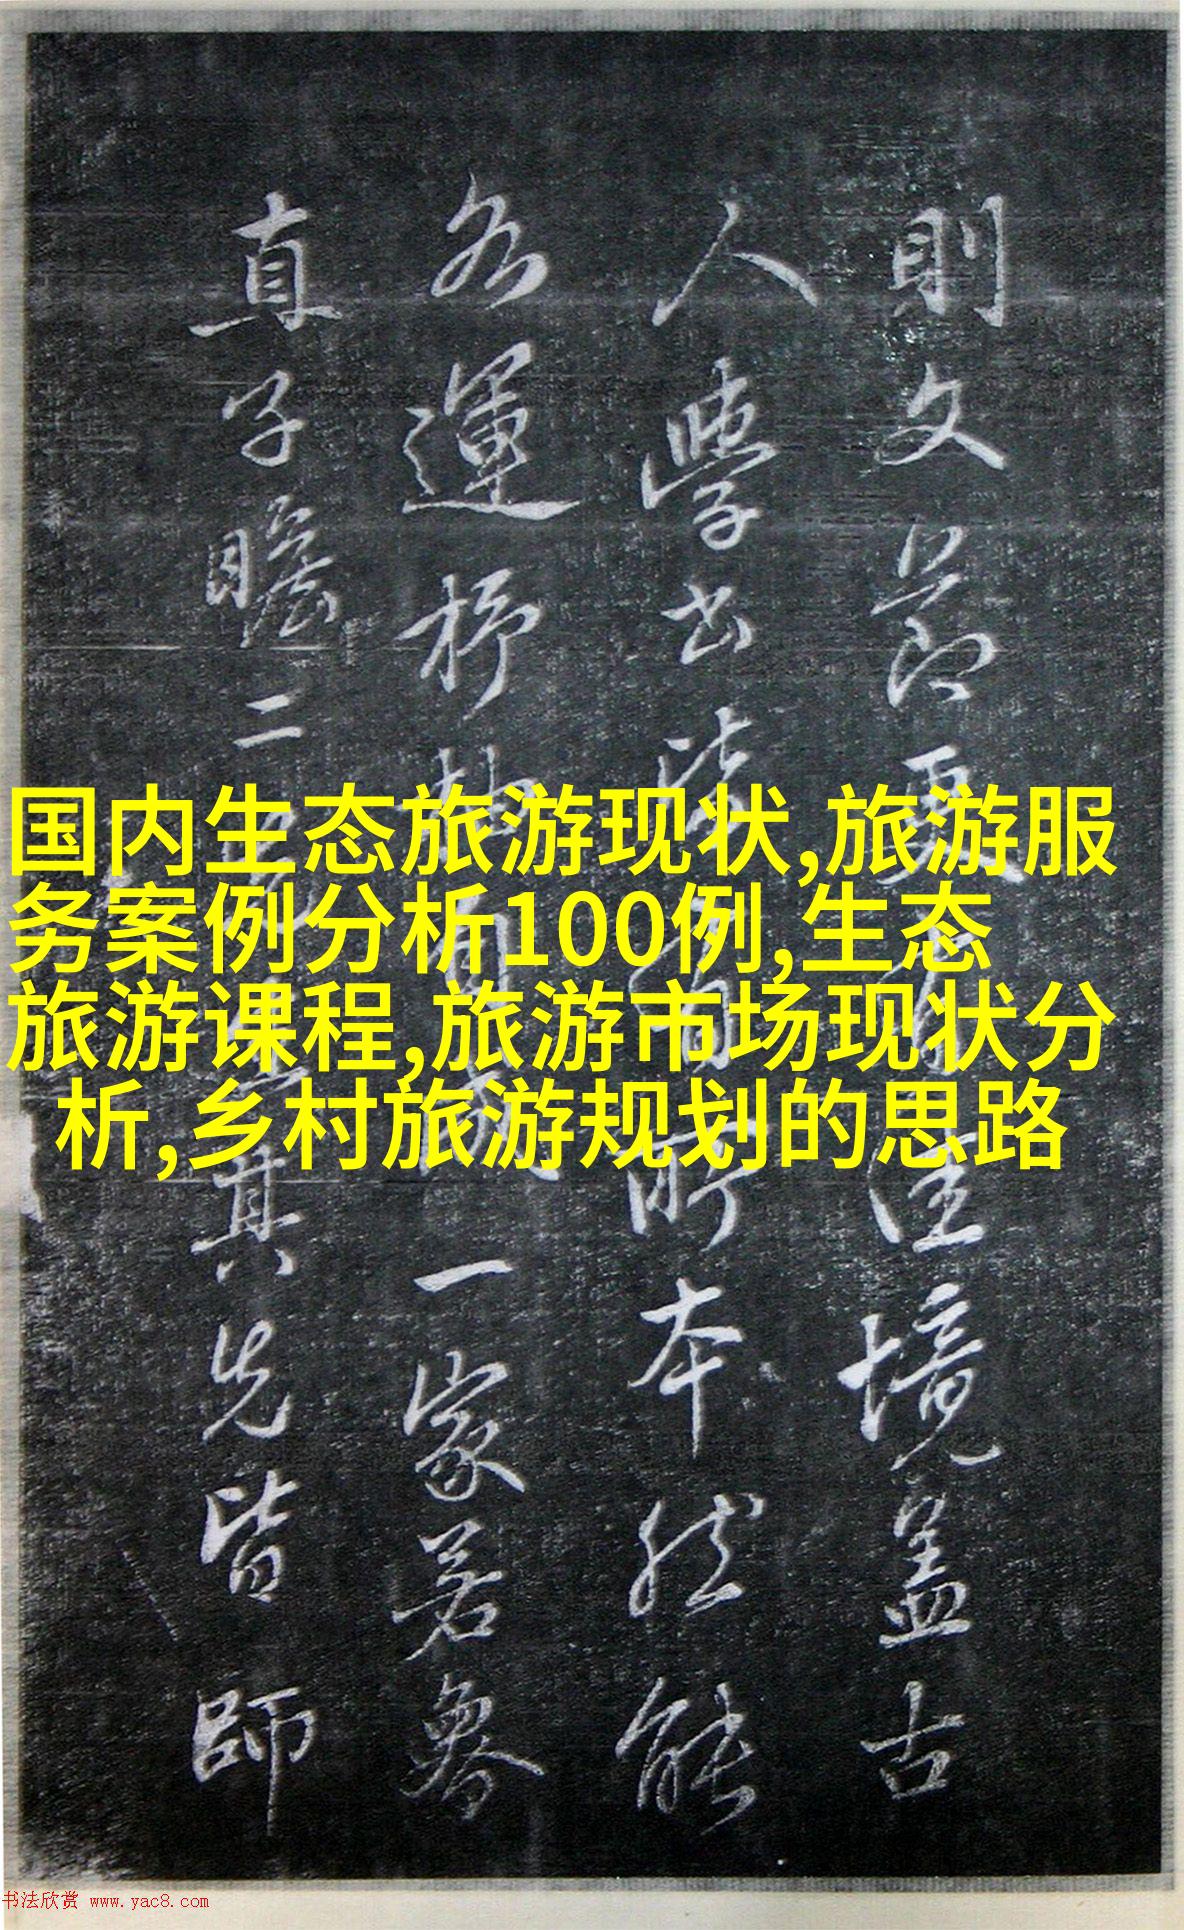 則文節要??汪境蓋古
人學書皆??所本然能
各運杼軸??一家若魯
直子瞻二??其先皆師
国内生态旅游现状,旅游服
务案例分析100例,生态
旅游课程,旅游市场现状分
析,乡村旅游规划的思路
书法欣赏 www.yac8.com